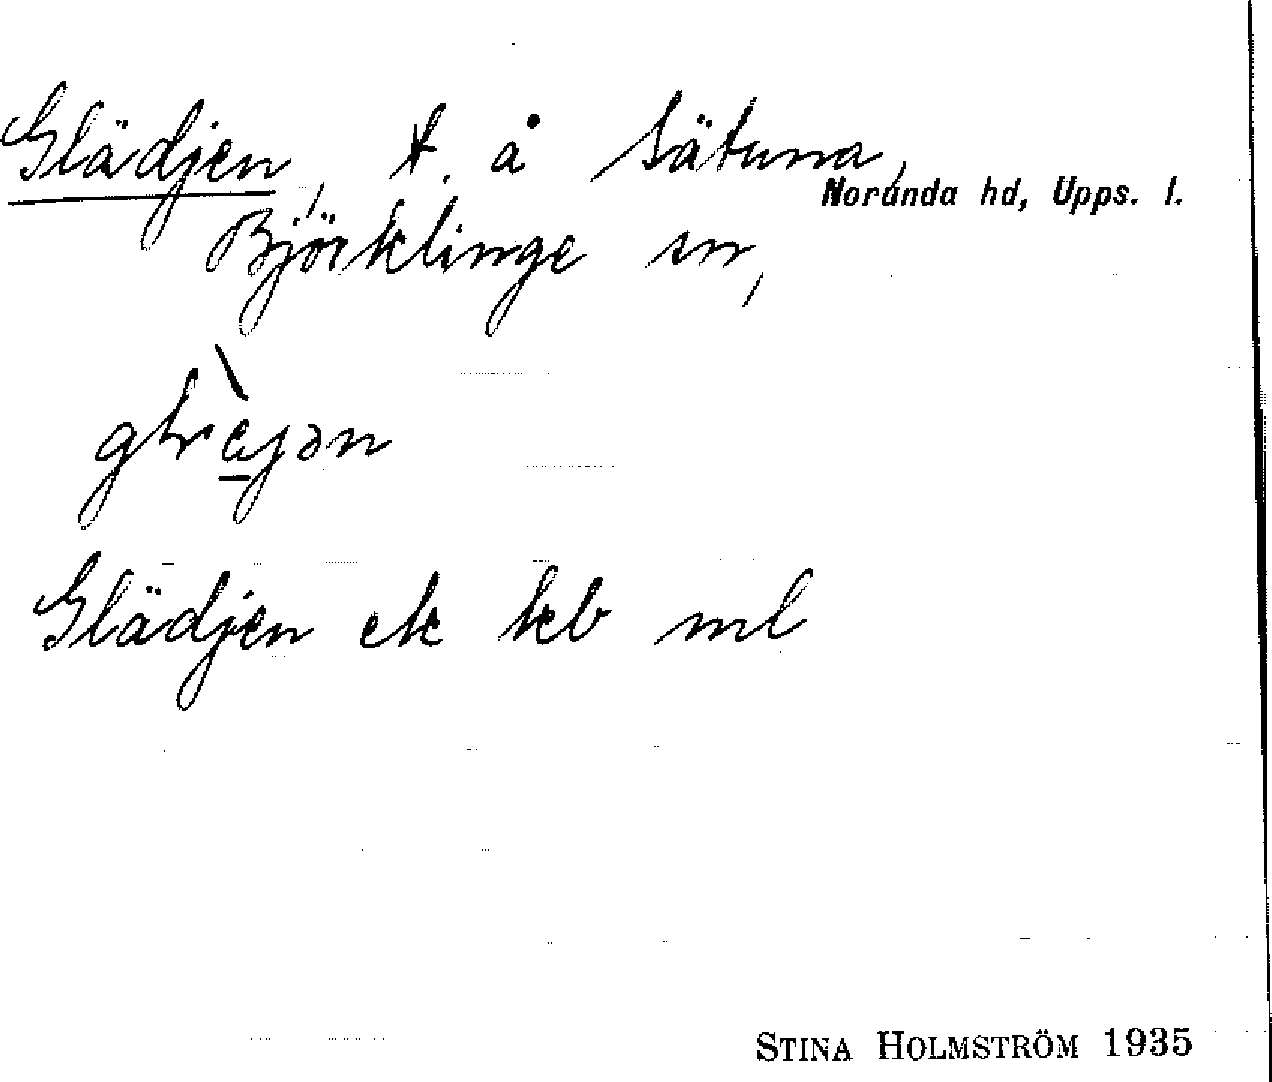 Glädjen, t. å Sätuna,
Norunda hd, Upps. l.
Björklinge sn,
Glädjen ek kb ml
STINA HOLMSTRÖM 1935